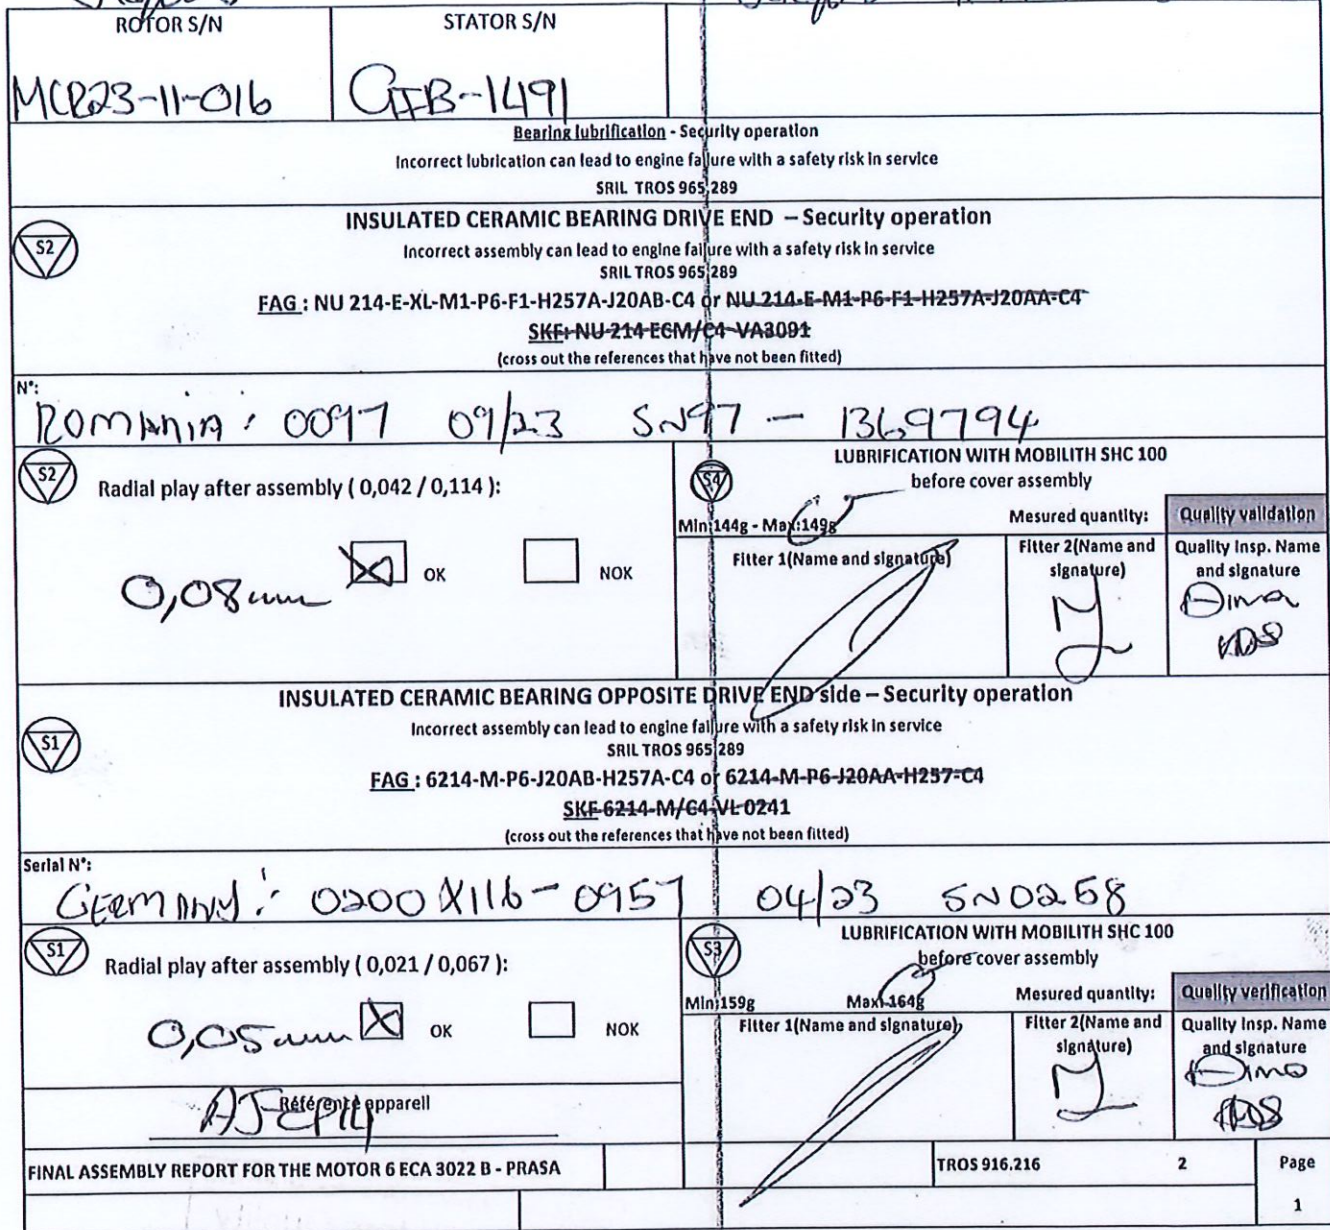 ROTOR S/N
STATOR S/N
MCR23-11-016
GIB-1491
Bearing lubrification - Security operation
Incorrect lubrication can lead to engine failure with a safety risk in service
SRIL TROS 965,289
S2
INSULATED CERAMIC BEARING DRIVE END – Security operation
Incorrect assembly can lead to engine failure with a safety risk in service
SRIL TROS 965,289
FAG : NU 214-E-XL-M1-P6-F1-H257A-J20AB-C4 or NU 214-E-M1-P6-F1-H257A-J20AA-C4
SKF: NU 214 ECM/C4-VA3091
(cross out the references that have not been fitted)
N°:
ROMANIA: 0097 09/23 SN97 - 1369794
S2
Radial play after assembly ( 0,042 / 0,114 ):
0,08mm OK NOK
S4
LUBRIFICATION WITH MOBILITH SHC 100
before cover assembly
Min:144g - Max:149g
Mesured quantity:
Quality validation
Fitter 1(Name and signature)
Fitter 2(Name and signature)
Quality Insp. Name
and signature
INSULATED CERAMIC BEARING OPPOSITE DRIVE END side – Security operation
Incorrect assembly can lead to engine failure with a safety risk in service
S1
SRIL TROS 965,289
FAG : 6214-M-P6-J20AB-H257A-C4 or 6214-M-P6-J20AA-H257-C4
SKF 6214-M/C4-VL0241
(cross out the references that have not been fitted)
Serial N°:
GERMANY: 0200X116-0957 04/23 SN0268
S1
Radial play after assembly ( 0,021 / 0,067 ):
0,05mm OK NOK
Référence appareil
S3
LUBRIFICATION WITH MOBILITH SHC 100
before cover assembly
Min:159g Max:164g
Mesured quantity:
Quality verification
Fitter 1(Name and signature)
Fitter 2(Name and signature)
Quality Insp. Name
and signature
FINAL ASSEMBLY REPORT FOR THE MOTOR 6 ECA 3022 B - PRASA
TROS 916.216
2
Page
1